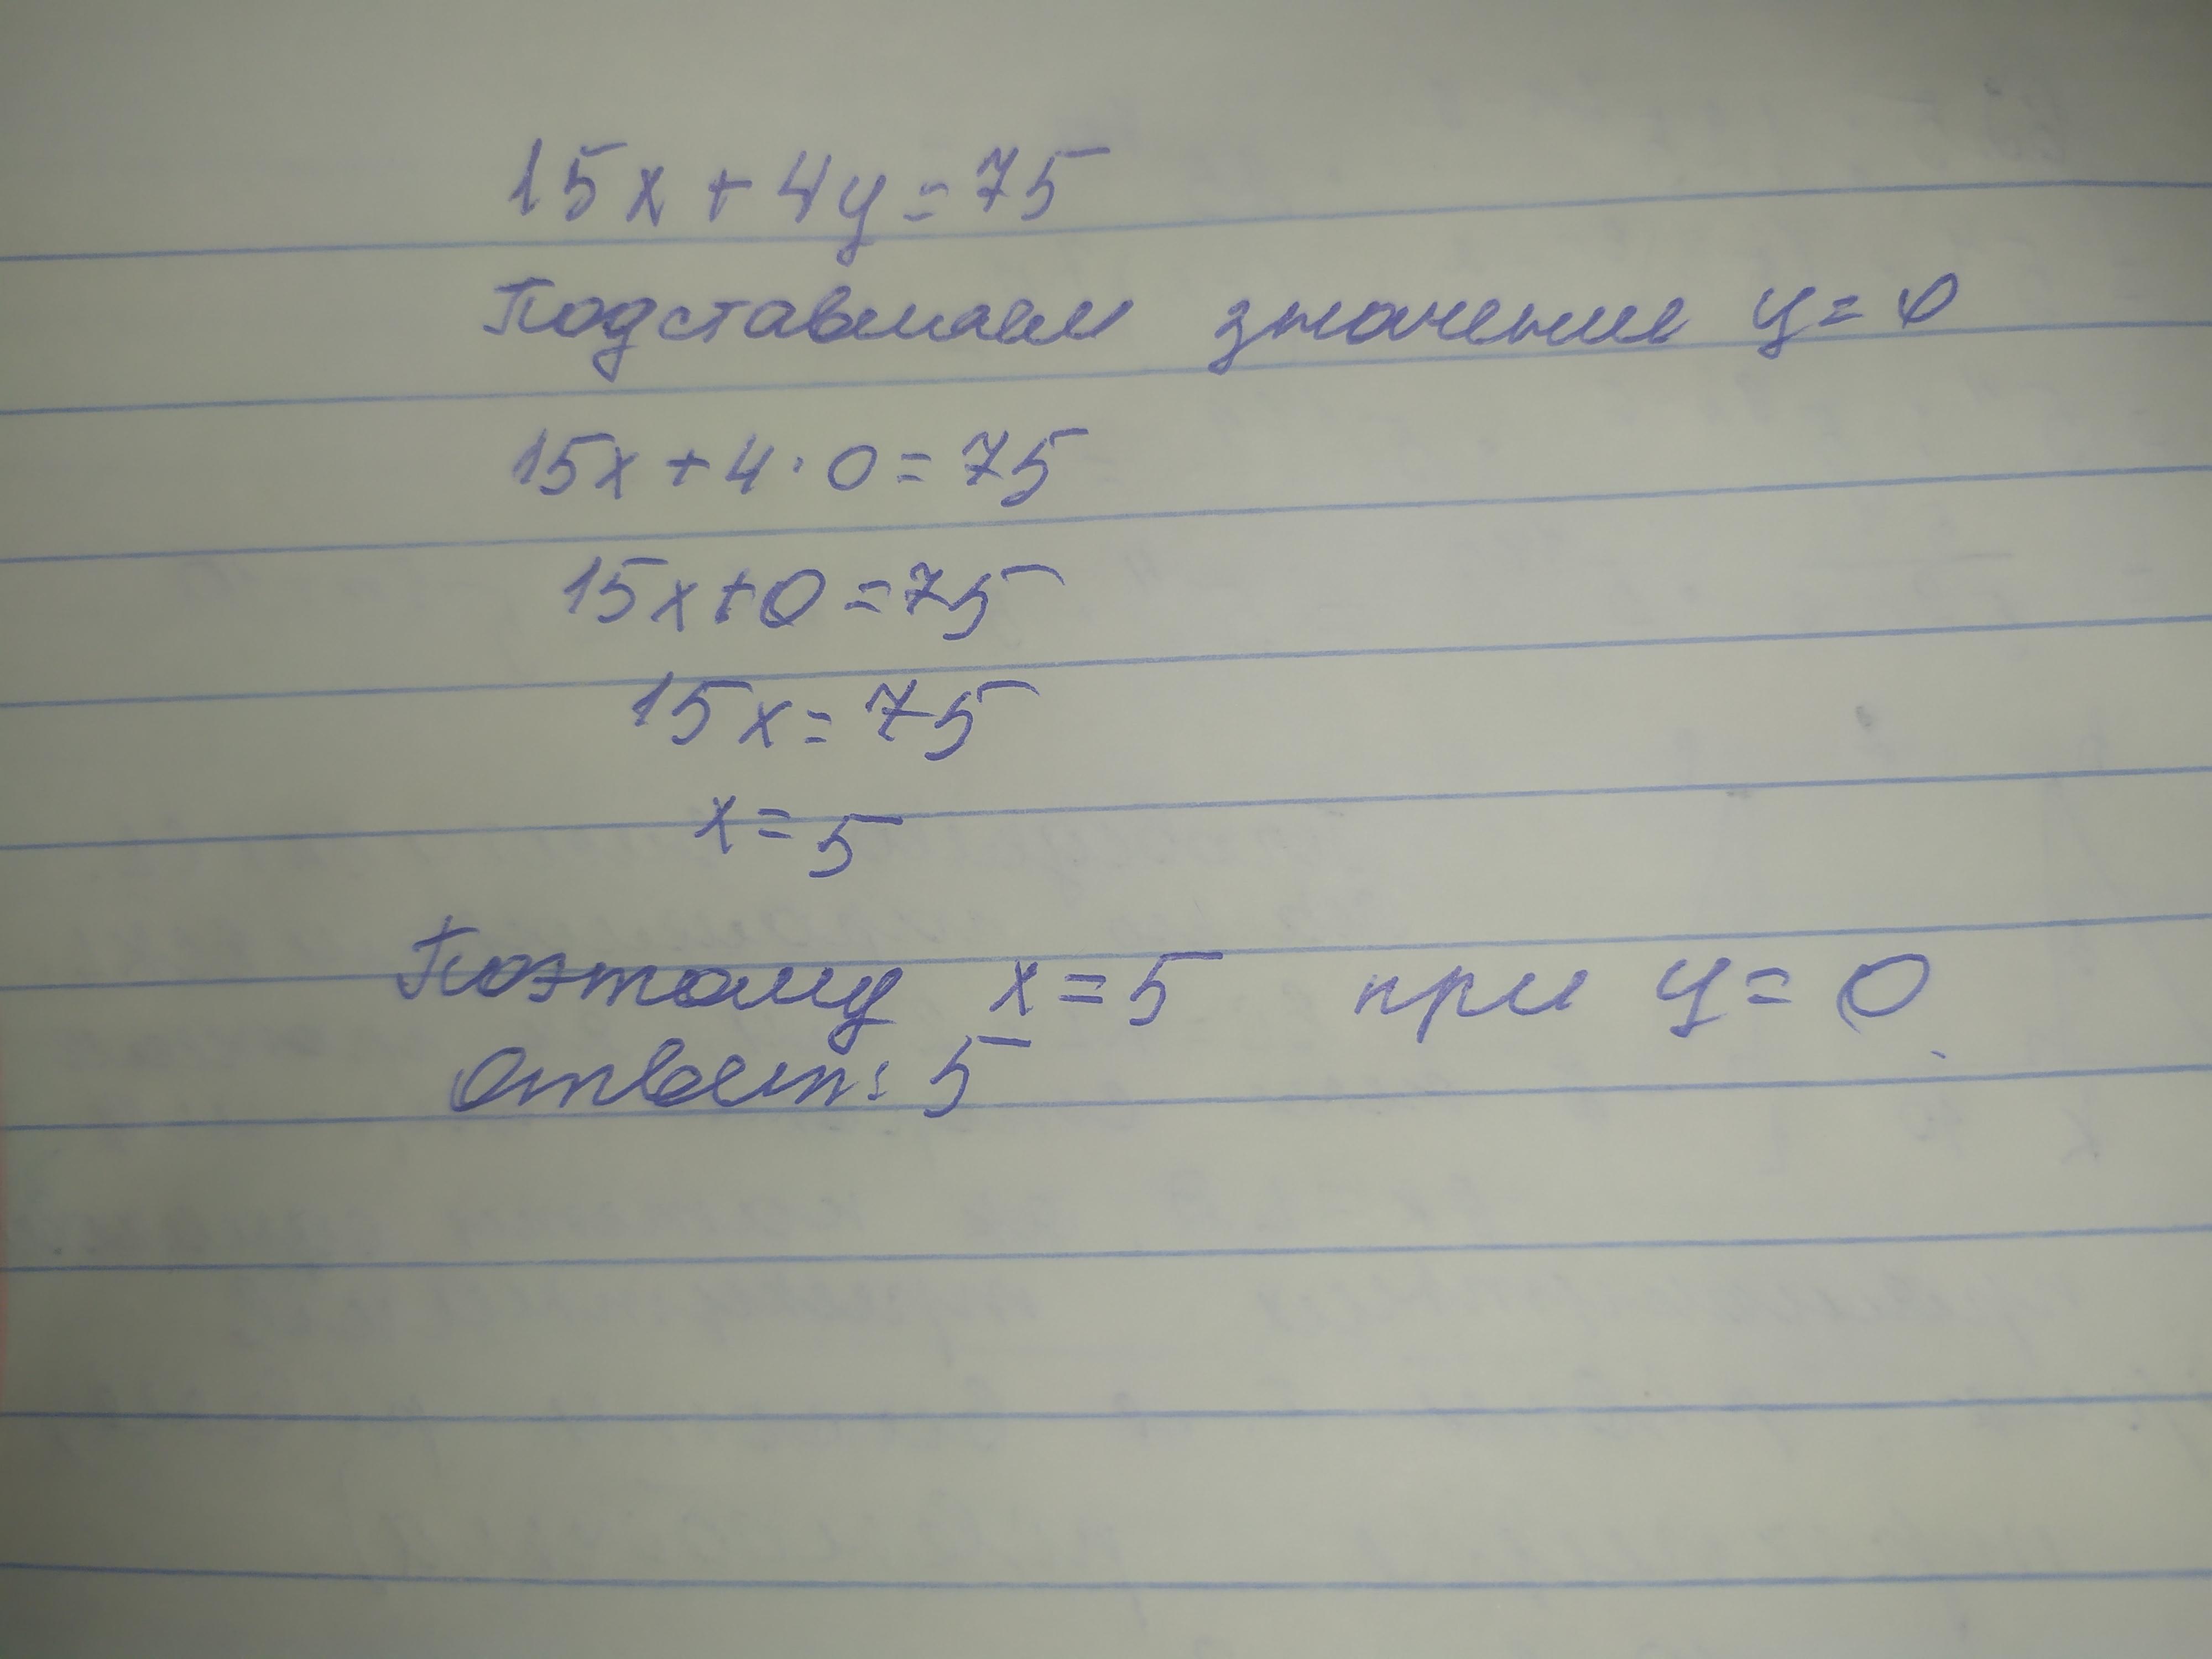 15x + 4y = 75
Подставляем значение y = 0
15x + 4 · 0 = 75
15x + 0 = 75
15x = 75
x = 5
Поэтому x = 5 при y = 0
Ответ: 5